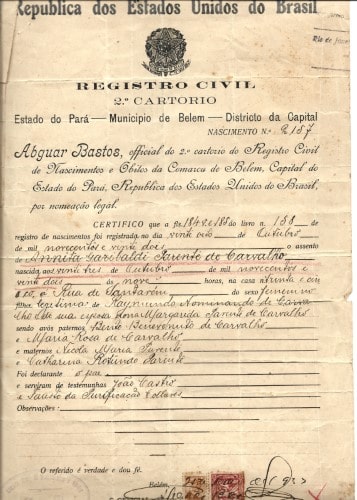 Republica dos Estados Unidos do Brasil
REGISTRO CIVIL
2.º CARTORIO
Estado do Pará — Municipio de Belem — Districto da Capital
NASCIMENTO N.º 2157
Abguar Bastos, official do 2.º cartorio do Registro Civil
de Nascimentos e Obitos da Comarca de Belem, Capital do
Estado do Pará, Republica dos Estados Unidos do Brasil,
por nomeação legal.
CERTIFICO que a fls. 184 e 185 do livro n. 158 de
registro de nascimentos foi registrado no dia vinte oito de Outubro
de mil novecentos e vinte dois o assento
de Annita Garibaldi Parente de Carvalho
nascida aos vinte tres de Outubro de mil novecentos e
vinte dois ás nove horas, na casa trinta e cin
co, a Rua de Santarem do sexo feminino
filha legitima de Raymundo Nominando de Carva
lho e de sua esposa Dona Margarida Parente de Carvalho
sendo avós paternos Bento Benevenuto de Carvalho
e Maria Rosa de Carvalho
e maternos Nicola Maria Parente
e Catharina Rotundo Parente
Foi declarante o pae
e serviram de testemunhas João Castro
e da Purificação Collares
Observações:
O referido é verdade e dou fé.
Belém,